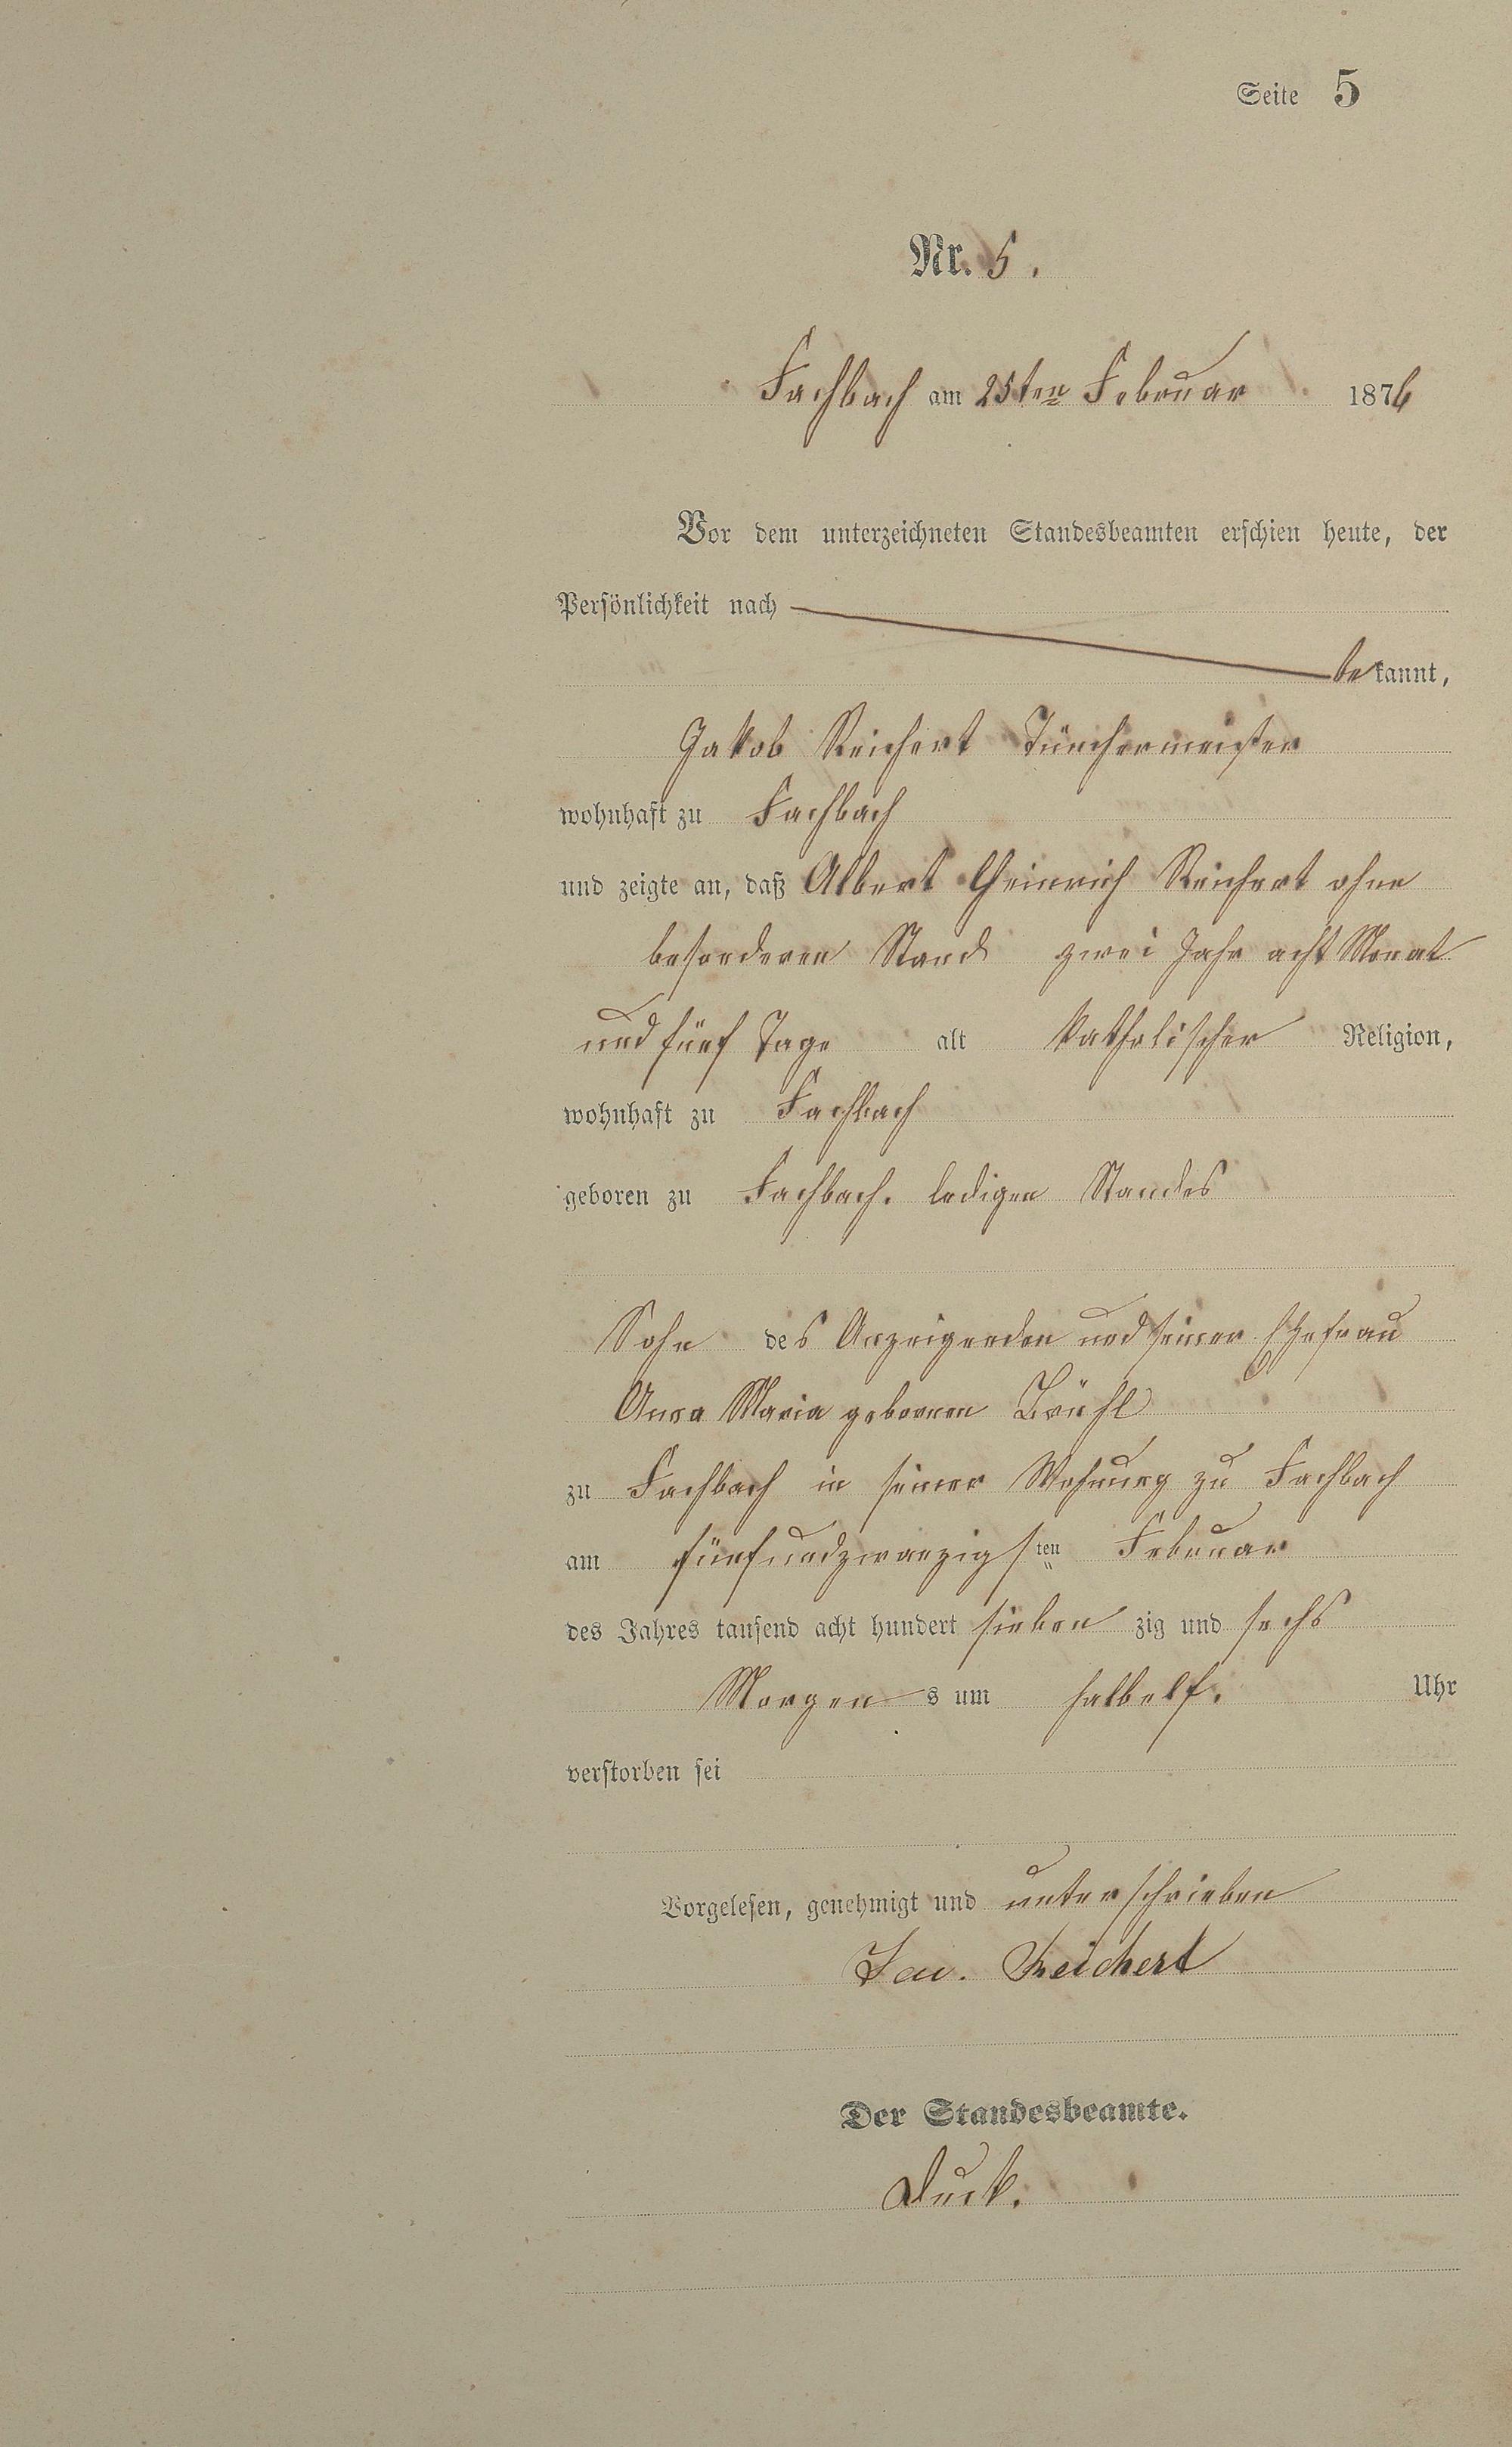 Seite 5
Nr. 5.
Fachbach am 25ten Februar 1876
Vor dem unterzeichneten Standesbeamten erschien heute, der
Persönlichkeit nach
bekannt,
Jakob Reichert Tünchermeister
wohnhaft zu Fachbach
und zeigte an, daß Albert Heinrich Reichert ohne
besonderen Stand zwei Jahr acht Monat
und fünf Tage alt katholischer Religion,
wohnhaft zu Fachbach
geboren zu Fachbach. ledigen Standes
Sohn des Anzeigenden und seiner Ehefrau
Anna Maria gebornen Brühl
zu Fachbach in seiner Wohnung zu Fachbach
am fünfundzwanzigsten Februar
des Jahres tausend acht hundert siebenzig und sechs
Morgens um halbelf. Uhr
verstorben sei
Vorgelesen, genehmigt und unterschrieben
Reichert
Der Standesbeamte.
Duck.